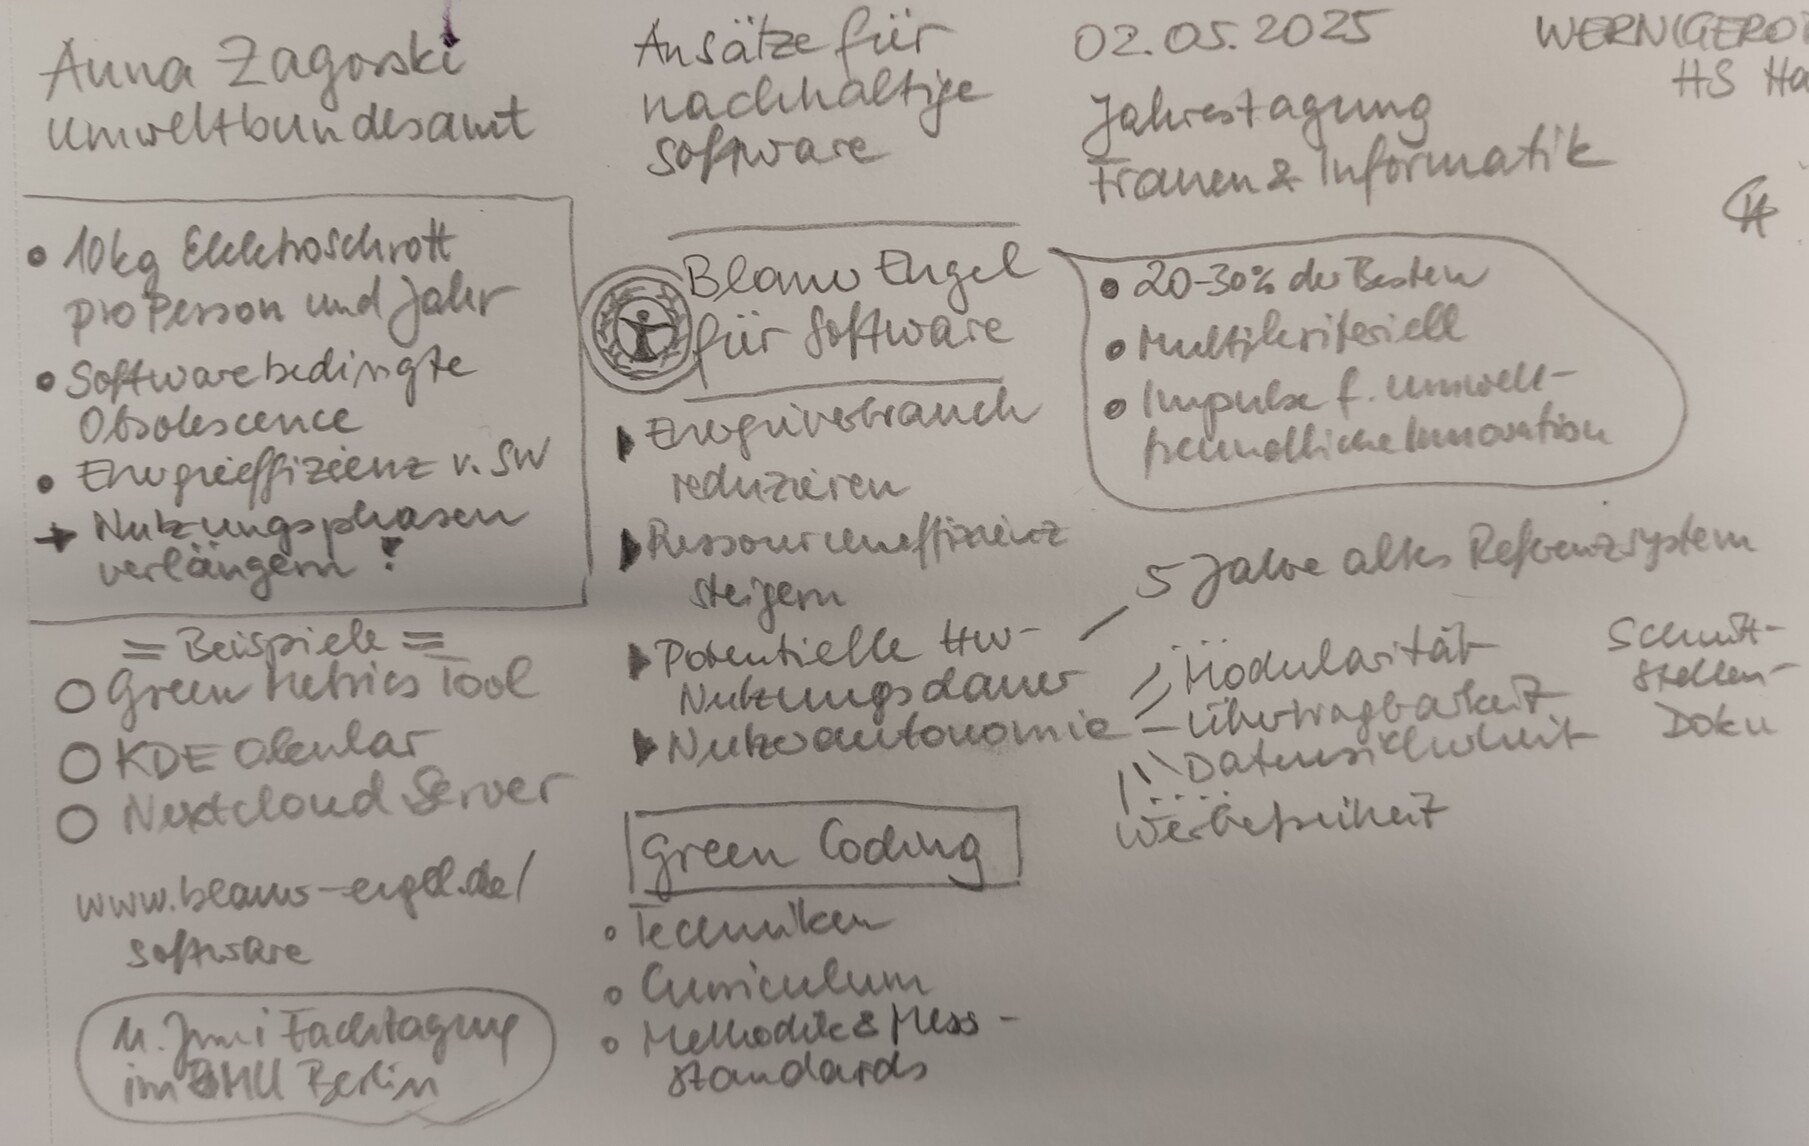 Anna Zagorski
Umweltbundesamt
Ansätze für
nachhaltige
Software
02.05.2025
Jahrestagung
Frauen & Informatik
WERNIGERO
HS Ha
• 10kg Elektroschrott
pro Person und Jahr
• Softwarebedingte
Obsolescence
• Energieeffizienz v. SW
→ Nutzungsphasen
verlängern!
= Beispiele =
○ Green Metrics Tool
○ KDE Okular
○ Nextcloud Server
www.blauer-engel.de/
software
11. Juni Fachtagung
im BMU Berlin
Blauer Engel
für Software
▶ Energieverbrauch
reduzieren
▶ Ressourceneffizienz
steigern
▶ Potentielle HW-
Nutzungsdauer
▶ Nutzerautonomie
Green Coding
∘ Techniken
∘ Curriculum
∘ Methodik & Mess-
standards
• 20-30% der Besten
• Multikriteriell
• Impulse f. umwelt-
freundliche Innovation
5 Jahre altes Referenzsystem
Modularität
Übertragbarkeit
Datensicherheit
Werbefreiheit
Schnitt-
stellen-
Doku